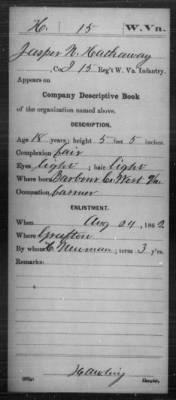 H. 15 W. Va.
Jasper N. Hathaway
Co. I, 15 Reg't W. Va. Infantry.
Appears on
Company Descriptive Book
of the organization named above.
DESCRIPTION.
Age 18 years; height 5 feet 5 inches.
Complexion fair
Eyes light; hair light
Where born Barbour Co. West Va.
Occupation farmer
ENLISTMENT.
When Aug 04, 1862.
Where Grafton
By whom Newman; term 3 y'rs.
Remarks:
Copyist.